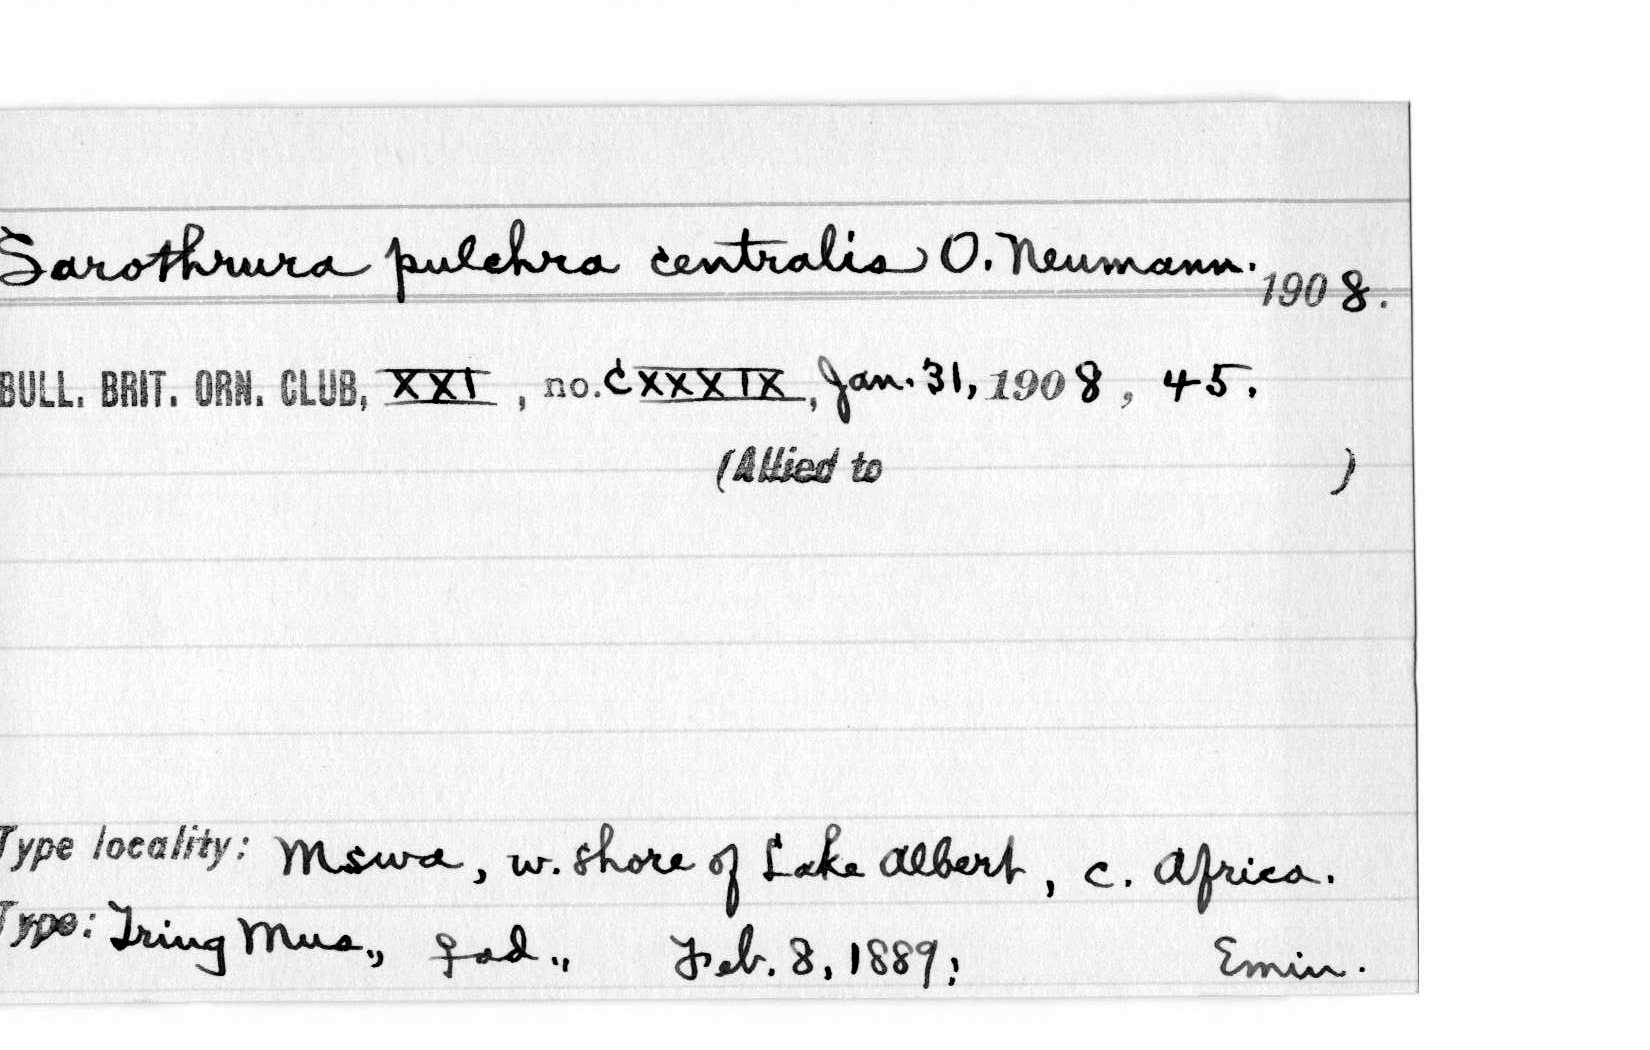 Sarothrura pulchra centralis O. Neumann. 1908.
BULL. BRIT. ORN. CLUB, XXI, no. CXXXIX, Jan. 31, 1908, 45.
(Allied to )
Type locality: Mswa, w. shore of Lake Albert, c. Africa.
Type: Tring Mus., ♀ ad., Feb. 8, 1889; Emin.